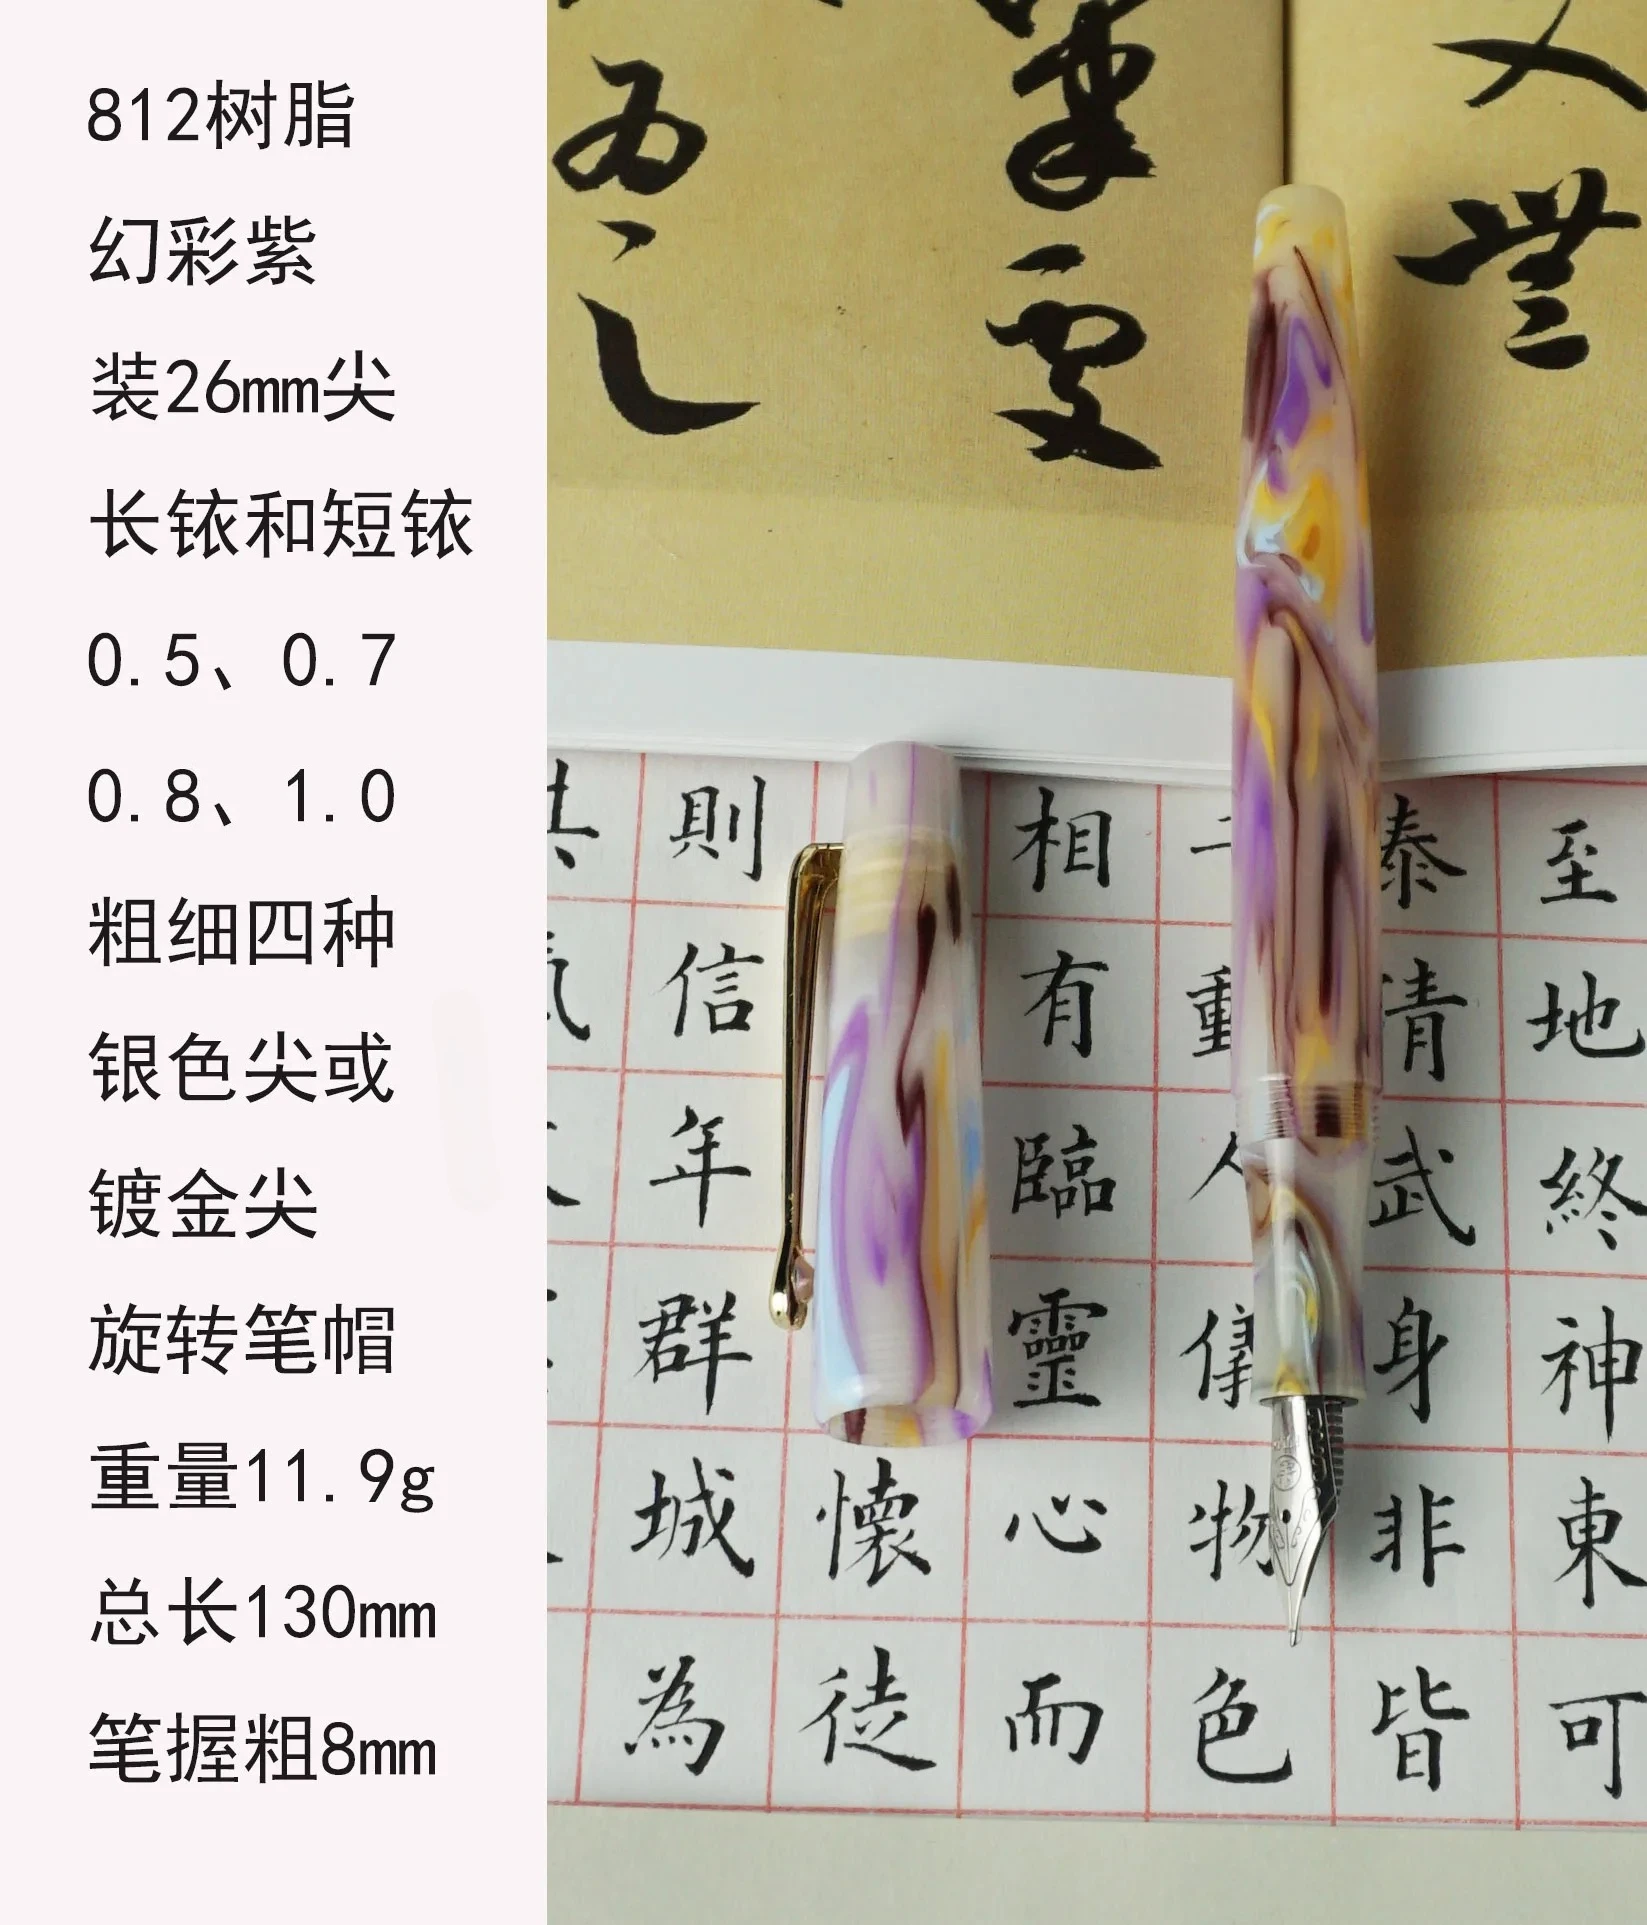 812树脂
幻彩紫
装26mm尖
长铱和短铱
0.5、0.7
0.8、1.0
粗细四种
银色尖或
镀金尖
旋转笔帽
重量11.9g
总长130mm
笔握粗8mm
至地終神東可
泰清武身非皆
動人儀物色
相有臨靈心而
懷徒
則信年群城為